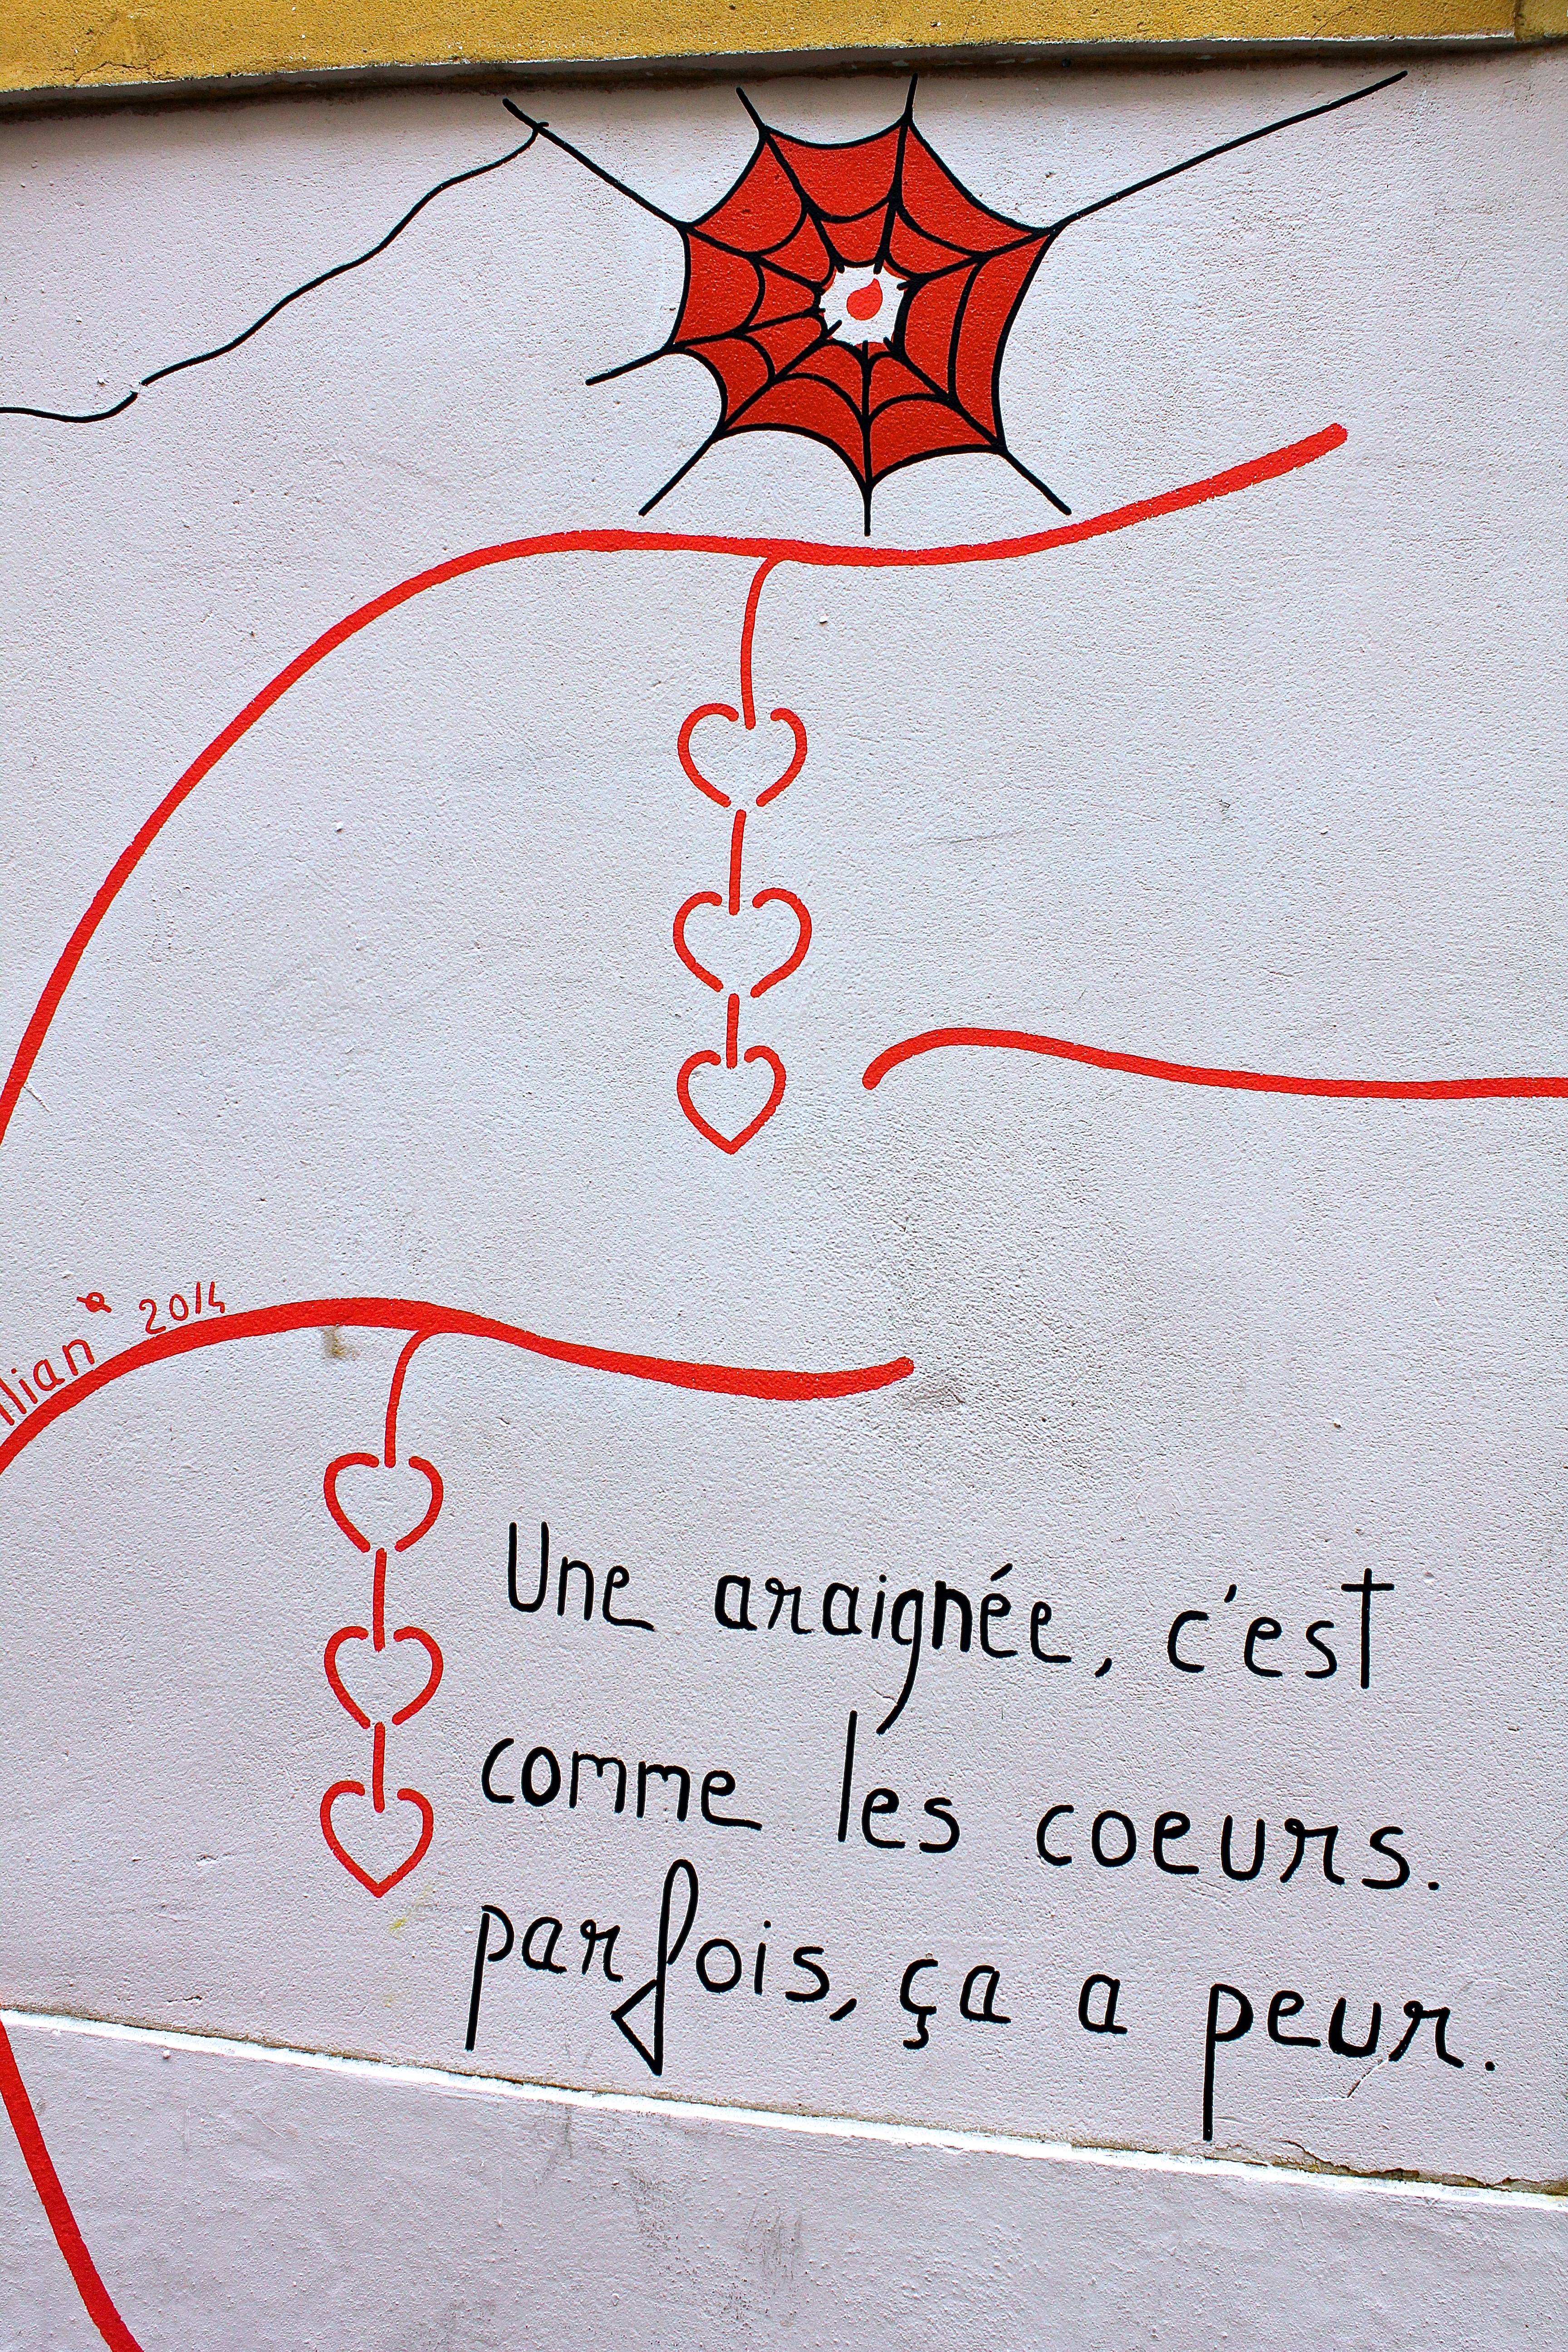 2014
Une araignée, c'est
comme les coeurs.
parfois, ça a peur.